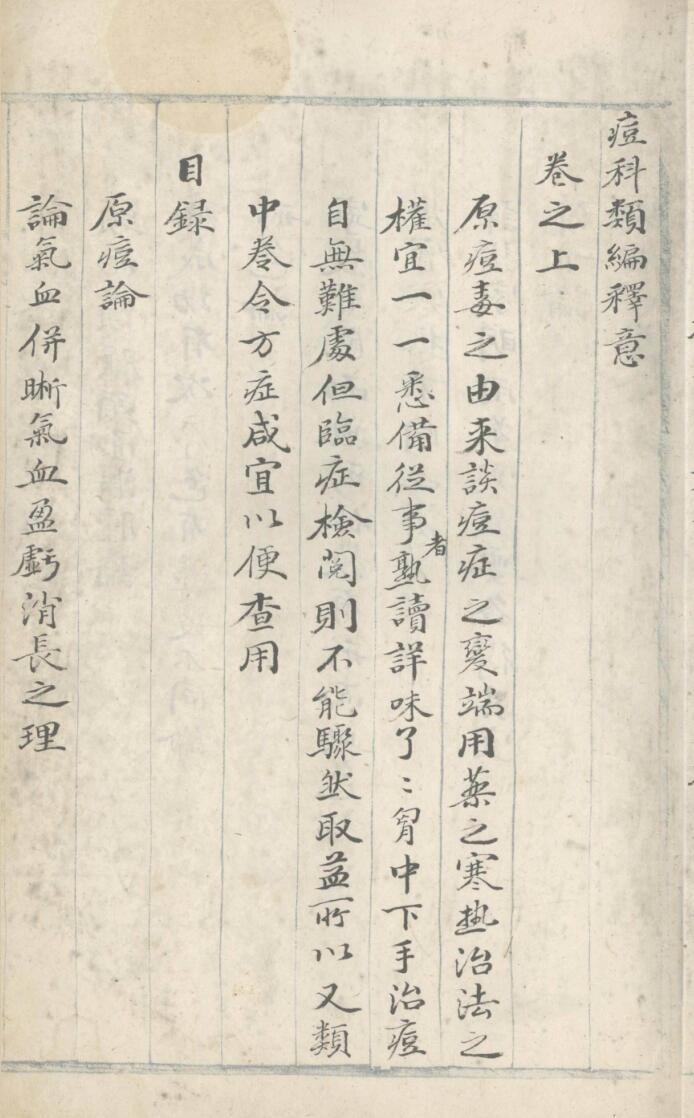 痘科類編釋意
卷之上
原痘毒之由来談痘症之變端用藥之寒热治法之
權宜一一悉備從事者熟讀詳味了〻胷中下手治痘
自無難處但臨症檢閱則不能驟然取益所以又類
中卷令方症咸宜以便查用
目録
原痘論
論氣血併晰氣血盈虧消長之理